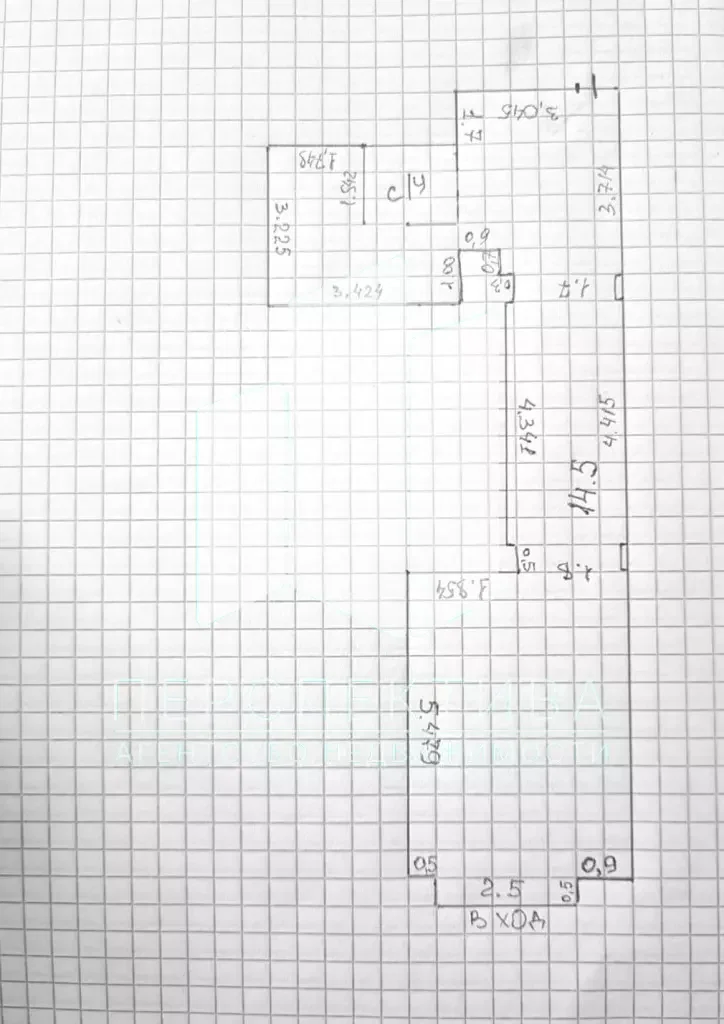 3,045
1.7
3.714
1,748
1,542
С
3.225
0,9
0,7
0,3
3.424
1.7
4,341
4.415
5.41
0,5
1.8
1.854
5.479
ПЕРСПЕКТИВА
АГЕНТСТВО НЕДВИЖИМОСТИ
0,5
0,9
2.5
0,5
ВХОД